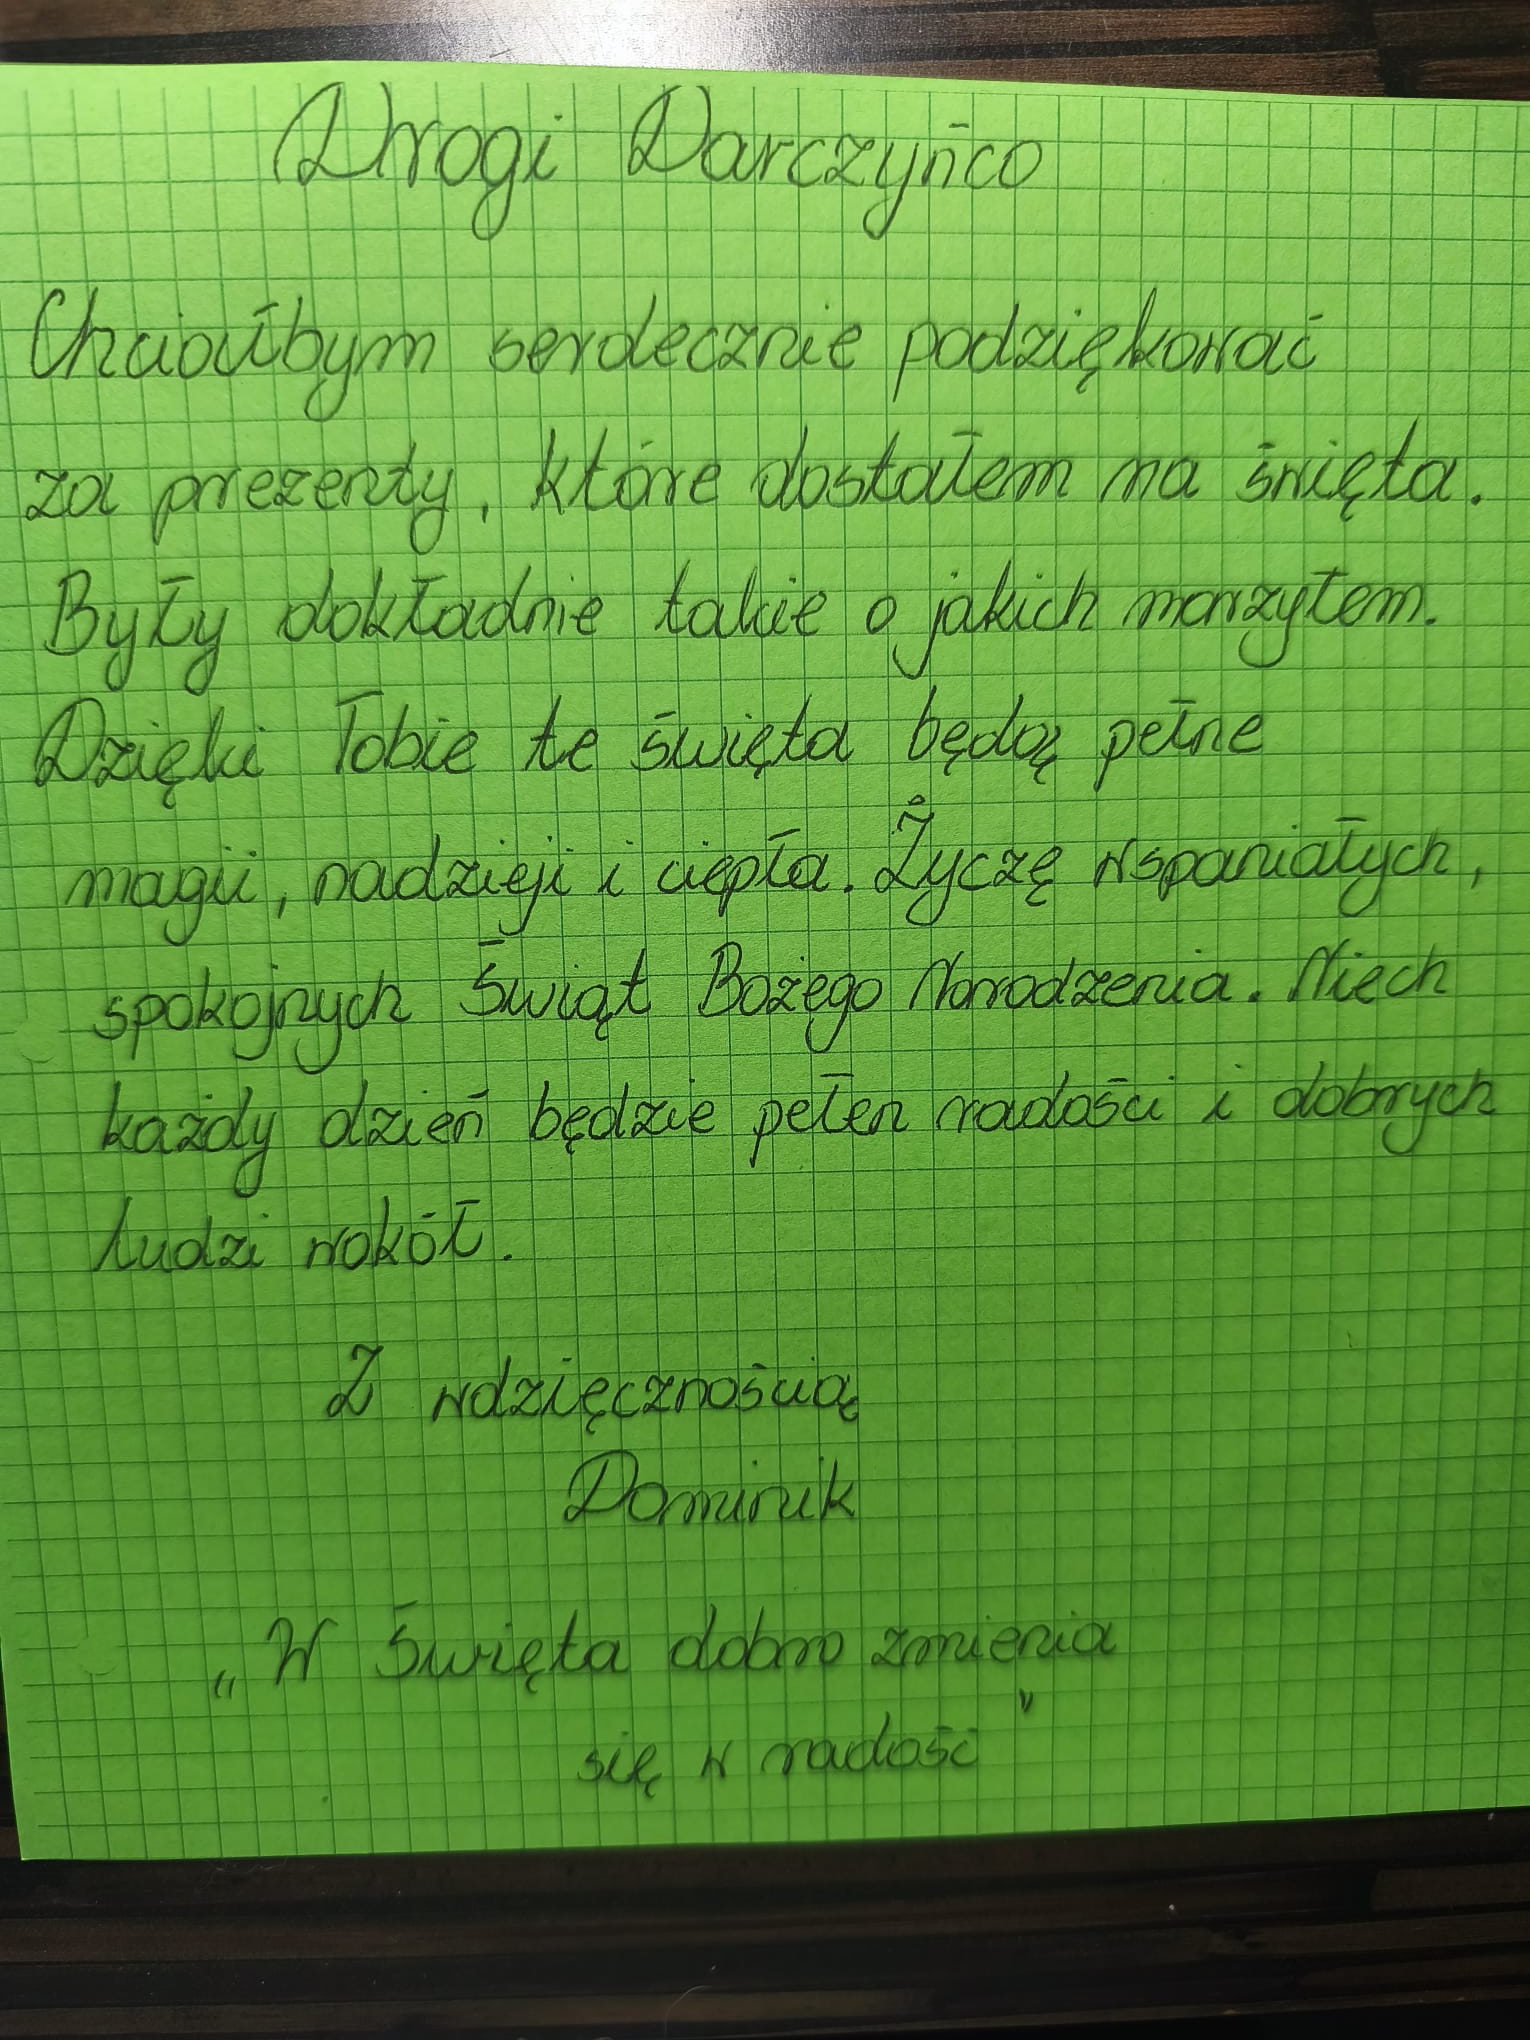 Drogi Darczyńco
Chciałbym serdecznie podziękować
za prezenty, które dostałem na święta.
Były dokładnie takie o jakich marzyłem.
Dzięki Tobie te święta będą pełne
magii, nadzieji i ciepła. Życzę wspaniałych,
spokojnych Świąt Bożego Narodzenia. Niech
każdy dzień będzie pełen radości i dobrych
ludzi wokół.
Z wdzięcznością
Dominik
„W Święta dobro zmienia
się w radość"